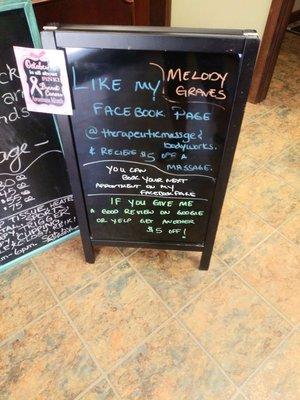 October
is all about PINK!
Breast
Cancer
Awareness Month
LIKE MY
MELODY
GRAVES
FACEBOOK PAGE
@therapeuticmassage &
bodyworks.
& RECIEVE $5 OFF A
MASSAGE.
YOU CAN
BOOK YOUR NEXT
APPOINTMENT ON MY
FACEBOOK PAGE
IF YOU GIVE ME
A GOOD REVIEW ON GOOGLE
OR YELP GET ANOTHER
$5 OFF!